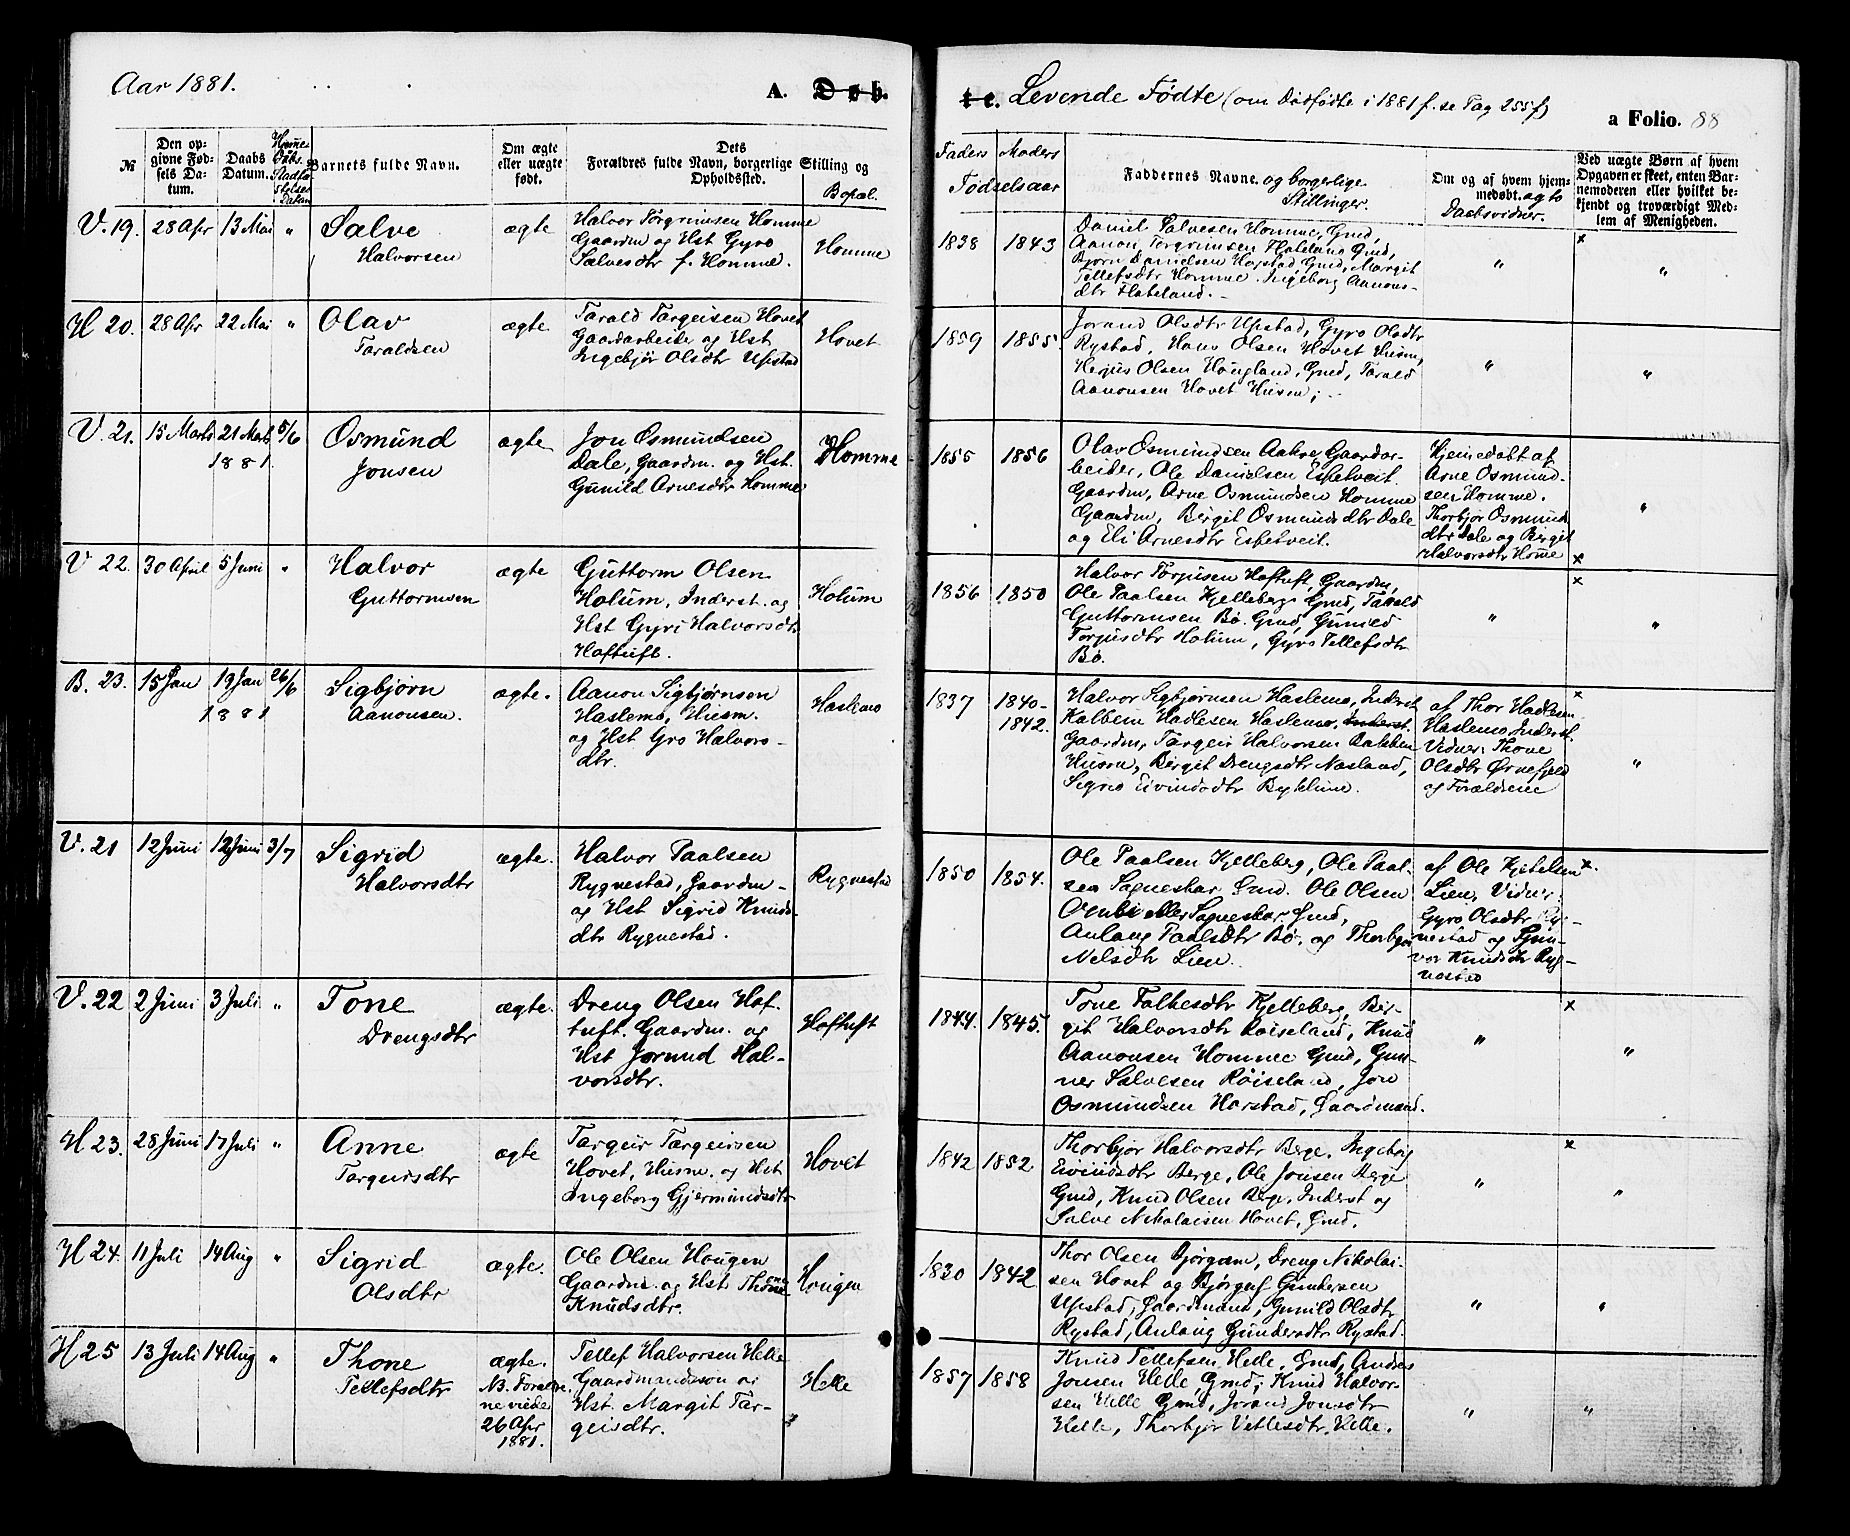 Aar 1881.
A. Døb-
te. Levende Fødte (om Dødfødte i 1881 f. se Pag 255 f)
a Folio. 88
No
Den op-
givne Fød-
sels Da-
tum.
Daabs
Datum.
Hjemme
Daabs.
Stadfæ
stelses
Datum
Barnets fulde Navn.
Om ægte
eller uægte
født.
Dets
Forældres fulde Navn, borgerlige Stilling og
Opholdssted.
Bopæl.
Faders Moders
Fødselsaar
Faddernes Navne. og borgerlige
Stillinger.
Om og af hvem hjem-
medøbt. og to
Daabsvidner.
Ved uægte Børn af hvem
Opgaven er skeet, enten Bar-
nemoderen eller hvilket be-
kjendt og troværdigt Med-
lem af Menigheden.
V. 19. 28 Apr 13 Mai "
Salve
Halvorsen
ægte
Halvor Torgrimsen Homme
Gaardm og Hst Gyro
Salvesdtr f. Homme.
Homme
1838 1843
Daniel Salvesen Homme, Gmd,
Aanon Torgrimsen Flateland Gmd,
Bjørn Danielsen Harstad Gmd, Margit
Tellefsdtr Homme. Ingeborg Aanons-
dtr Flateland. -
" × "
H 20. 28 Apr 22 Mai "
Olav
Taraldsen
ægte
Tarald Targeisen Hovet
Gaardarbeider og Hst
Ingebjør Olsdtr Upstad
Hovet
1859 1855.
Jorand Olsdtr Upstad, Gyro Olsdtr
Rystad, Hans Olsen Hovet Husm,
Herjus Olsen Hougland, Gmd, Tarald
Aanonsen Hovet Husm; -
" "
V. 21. 15 Marts 21 Marts 5/6
1881.
Osmund
Jonsen
ægte
Jon Osmundsen
Dale, Gaardm. og Hst.
Gunild Arnesdtr Homme
Homme
1855 1856
Olav Osmundsen Aakre Gaardar-
beider, Ole Danielsen Espetveit
Gaardm, Arne Osmundsen Homme
Gaardm, Bergit Osmundsdtr Dale
og Eli Arnesdtr Espetveit.
Hjemedøbt af
Arne Osmund-
sen Homme.
Thorbjør Osmunds
dtr Dale og Birgit
Halvorsdtr Home
" ×
V 22. 30 April 5 Juni "
Halvor
Guttormsen
ægte
Guttorm Olsen
Holum, Inderst. og
Hst Gyri Halvorsdtr
Haftuft.
Holum
1856 1850
Halvor Torjusen Haftuft, Gaardm,
Ole Paalsen Kjelleberg Gmd, Tarald
Guttormsen Bø. Gmd, Gunild
Torjusdtr Holum, Gyro Tellefsdtr
Bø.
" × "
B. 23. 15 Jan 19 Jan 26/6
1881
Sigbjørn
Aanonsen.
ægte.
Aanon Sigbjørnsen
Haslemo, Husm.
og Hst Gro Halvors-
dtr.
Haslemo
1837 1840-
1842.
Halvor Sigbjørnsen Haslemo, Inderst
Kolbein Hadlesen Haslemo, Inderst.
Gaardm, Targeir Halvorsen Bakken
Husm, Bergit Drengsdtr Næsland,
Sigrid Eivindsdtr Byklum.
af Thor Hadlesen
Haslemo, Inderst.
Vidner: Thone
Olsdtr Ørnefjeld
og Forældrene
× "
V. 21 12 Juni 12 Juni 3/7
Sigrid
Halvorsdtr
ægte.
Halvor Paalsen
Rygnestad, Gaardm -
og Hst Sigrid Knuds-
dtr Rygnestad.
Rygnestad
1850 1854.
Ole Paalsen Kjelleberg, Ole Paal-
sen Sagneskar Gmd. Ole Olsen
eller Sagneskar Gmd,
Anlang Paalsdtr Bø, og Thorbjør
Nelsdtr Lien.
af Ole Kjetelsen
Lien, Vidner:
Gyro Olsdtr Ryg-
nestad og Gun-
vor Knudsdtr Ryg-
nestad
×.
V. 22 2 Juni 3 Juli "
Tone
Drengsdtr
ægte.
Dreng Olsen Haf-
tuft. Gaardm. og
Hst Jorund Hal-
vorsdtr.
Haftuft
1844. 1845.
Tone Falkesdtr Kjelleberg, Ber-
git Halvorsdtr Røiseland, Knud
Aanonsen Homme Gmd, Gun-
ner Salvesen Røiseland, Jon
Osmundsen Harstad, Gaardmænd.
" × "
H 23. 28 Juni 17 Juli "
Anne
Targeirsdtr
ægte
Targeir Targeirsen
Hovet, Husm. og Hst
Ingeborg Gjermundsdtr
Hovet
1842 1852
Thorbjør Halvorsdtr Berge, Ingebørg
Eivindsdtr Berge, Ole Jonsen Berge
Gmd, Knud Olsen Berge, Inderst og
Salve Nikolaisen Hovet, Gmd.
" × "
H 24. 11 Juli 14 Aug "
Sigrid
Olsdtr
ægte.
Ole Olsen Hougen
Gaardm. og Hst Thone
Knudsdtr.
Hougen
1830 1842
Thor Olsen Bjørgum, Dreng Nikolai-
sen Hovet og Bjørguf Gundersen
Upstad, Gaardmænd, Gunild Olsdtr
Rystad, Anlaug Gundersdtr Rystad.
" "
H 25 13 Juli 14 Aug "
Thone
Tellefsdtr
ægte.
NB. Foræld.
ne viede
26 Apr
1881.
Tellef Halvorsen Helle
Gaardmandssøn og
Hst. Margit Tar-
geisdtr.
Helle
1857 1858
Knud Tellefsen Helle, Gmd, Andres
Jonsen Helle, Gmd; Knud Halvor-
sen Helle Gmd, Jorand Jonsdtr
Helle, Thorbjør Vetlesdtr. Helle.
" "